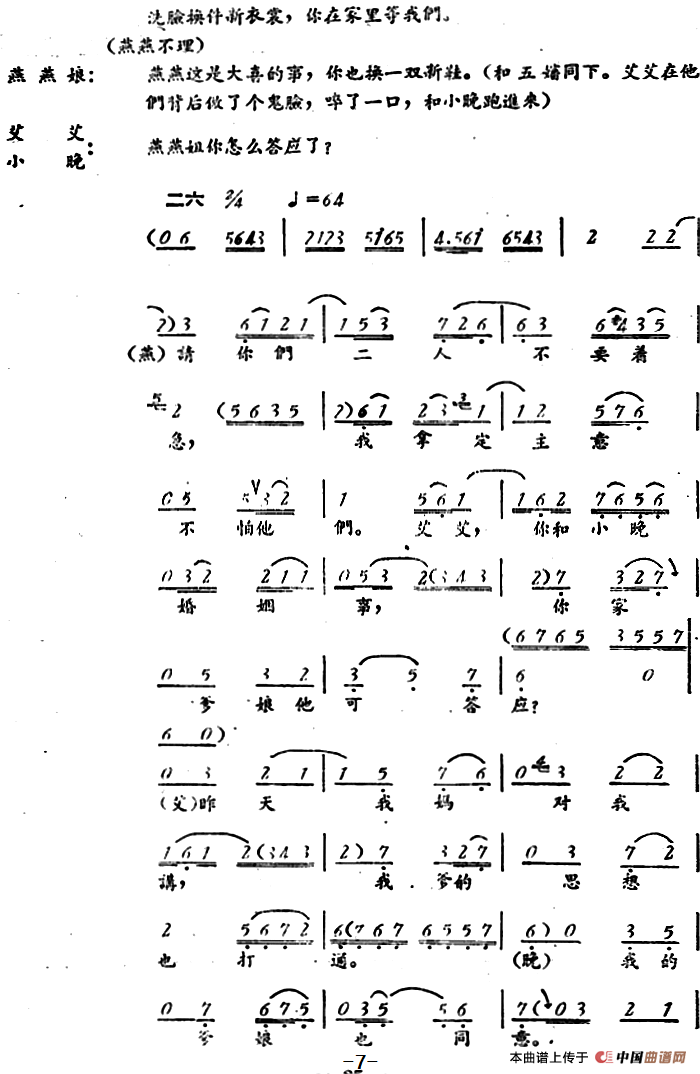 洗臉換件新衣裳，你在家里等我們。
(燕燕不理)
燕燕娘： 燕燕这是大喜的事，你也換一双新鞋。(和五嬸同下。艾艾在他
們背后做了个鬼臉，啐了一口，和小晚跑進来)
艾艾
小晚： 燕燕姐你怎么答应了？
二六 2/4 ♩=64
(0 6 5643 | 2123 5i65 | 4.56i 6543 | 2 2 2
2)3 6 1 2 1 | 1 5 3 7 2 6 | 6 3 6 4 3 5
(燕)請 你 們 二 人 不 要 着
5 2 (5 6 3 5 | 2) 6 1 2 3 3 1 | 1 2 5 7 6
急， 我 拿 定 主 意
0 5 5 3 2 | 1 5 6 1 | 1 6 2 7 6 5 6
不 怕他 們。 艾 艾， 你和 小 晚
0 3 2 2 1 1 | 0 5 3 2(3 4 3 | 2) 7 3 2 7
婚 姻 事， 你 家
(6 7 6 5 3 5 5 7
0 5 3 2 | 3 5 7 | 6 0
爹 娘他 可 答 应？
6 0)
0 3 2 1 | 1 5 7 6 | 0 4 3 2 2
(艾)昨 天 我 媽 对 我
1 6 1 2(3 4 3 | 2) 7 3 2 7 | 0 3 7 2
講， 我 爹的 思 想
2 5 6 7 2 | 6(7 6 7 6 5 5 7 | 6) 0 3 5
也 打 通。 (晚) 我 的
0 7 6 7 5 | 0 3 5 5 6 | 7 (0 3 2 1
爹 娘 也 同 意。
-7-
本曲谱上传于 中国曲谱网